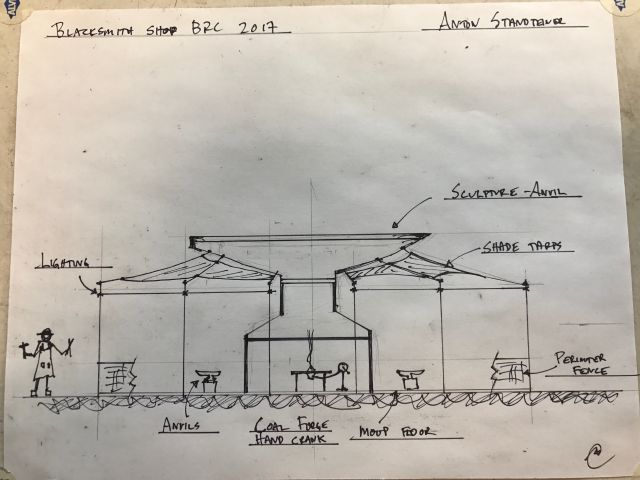 BLACKSMITH SHOP BRC 2017
ANTON STANDTEINER
SCULPTURE-ANVIL
SHADE TARPS
LIGHTING
PERIMITER
FENCE
ANVILS
COAL FORGE
HAND CRANK
MOUP FLOOR